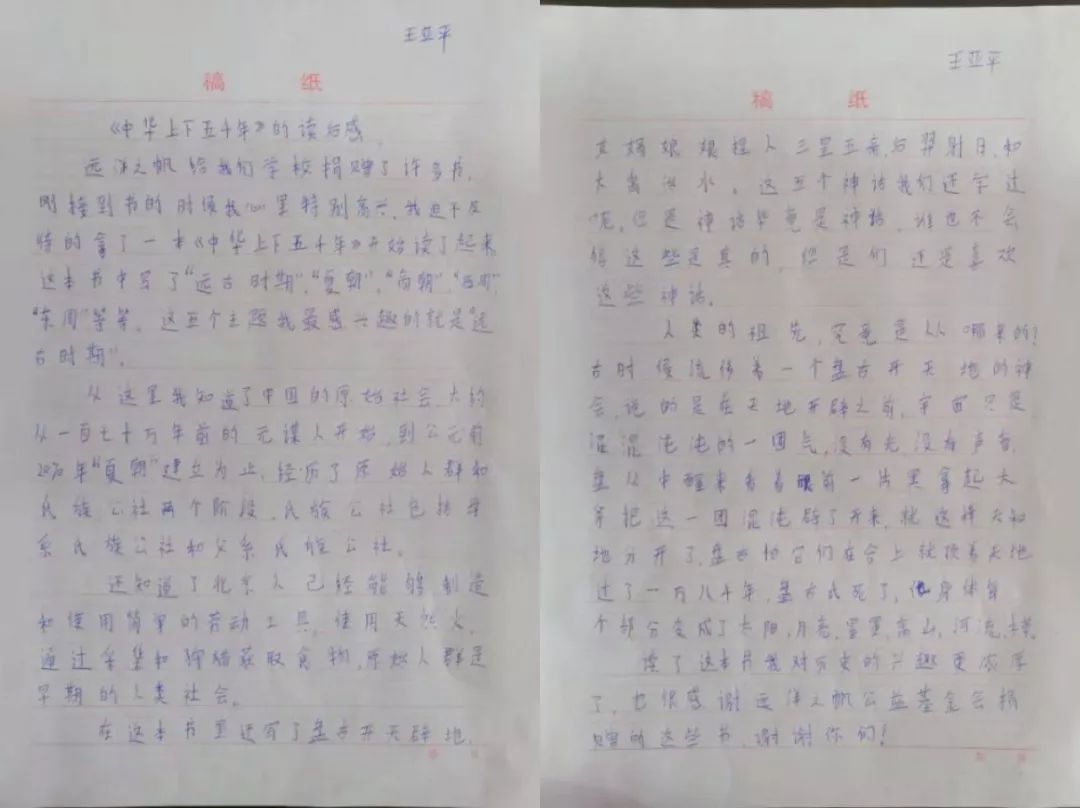 王亚平
稿 纸
《中华上下五千年》的读后感
远洋之帆给我们学校捐赠了许多书,
刚接到书的时候我心里特别高兴,我迫不及
待的拿了一本《中华上下五千年》开始读了起来,
这本书中写了“远古时期”,“夏朝”,“商朝”,“西周”,
“东周”等等,这五个主题我最感兴趣的就是“远
古时期”。
从这里我知道了中国的原始社会,大约
从一百七十万年前的元谋人开始,到公元前
2070年“夏朝”建立为止,经历了原始人群和
氏族公社两个阶段,氏族公社包括母
系氏族公社和父系氏族公社。
还知道了北京人已经能够制造
和使用简单的劳动工具,使用天然火,
通过采集和狩猎获取食物,原始人群是
早期的人类社会。
在这本书里还有了盘古开天辟地,
王亚平
稿 纸
女娲娘娘捏人三皇五帝,后羿射日,和
大禹治水。这五个神话我们还学过
呢,但是神话毕竟是神话,谁也不会
信这些是真的,但是们还是喜欢
这些神话。
人类的祖先,究竟是从哪来的?
古时候流传着一个盘古开天地的神
会,说的是在天地开辟之前,宇宙只是
混混沌沌的一团气,没有光,没有声音,
盘从中醒来看着眼前一片黑拿起大
斧把这一团混沌劈了开来,就这样天和
地分开了,盘古怕它们在合上就顶着天地
过了一万八千年,盘古氏死了,他身体每
个部分变成了太阳,月亮,星星,高山,河流,
读了这本书我对历史的兴趣更浓厚
了,也很感谢远洋之帆公益基金会捐
赠的这些书,谢谢你们!